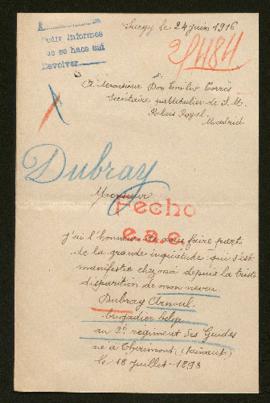 le 24 juin 1916
Pedir Informes
de se hace aqui
Devolver
A Monsieur Don Emilio Torrès
Secrétaire particulier de S. M.
Palais Royal.
Madrid
Dubray
Monsieur
Fecho
j'ai l'honneur de vous faire part
de la grande inquiétude qui s'est
manifestée chez moi depuis la triste
disparition de mon neveu
Dubray
brigadier belge
au 2e régiment des Guides
né à (Hainaut)
le 18 Juillet 1893